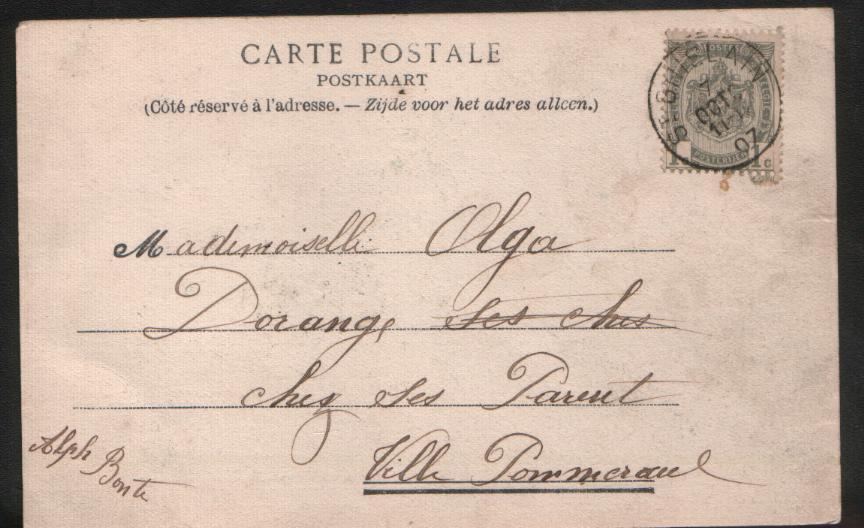 CARTE POSTALE
POSTKAART
(Côté réservé à l'adresse. — Zijde voor het adres alleen.)
ST-GHISLAIN
OCT
07
Mademoiselle Olga
Dorange ses ches
chez ses Parent
Ville Pommeraul
Alph Bonte